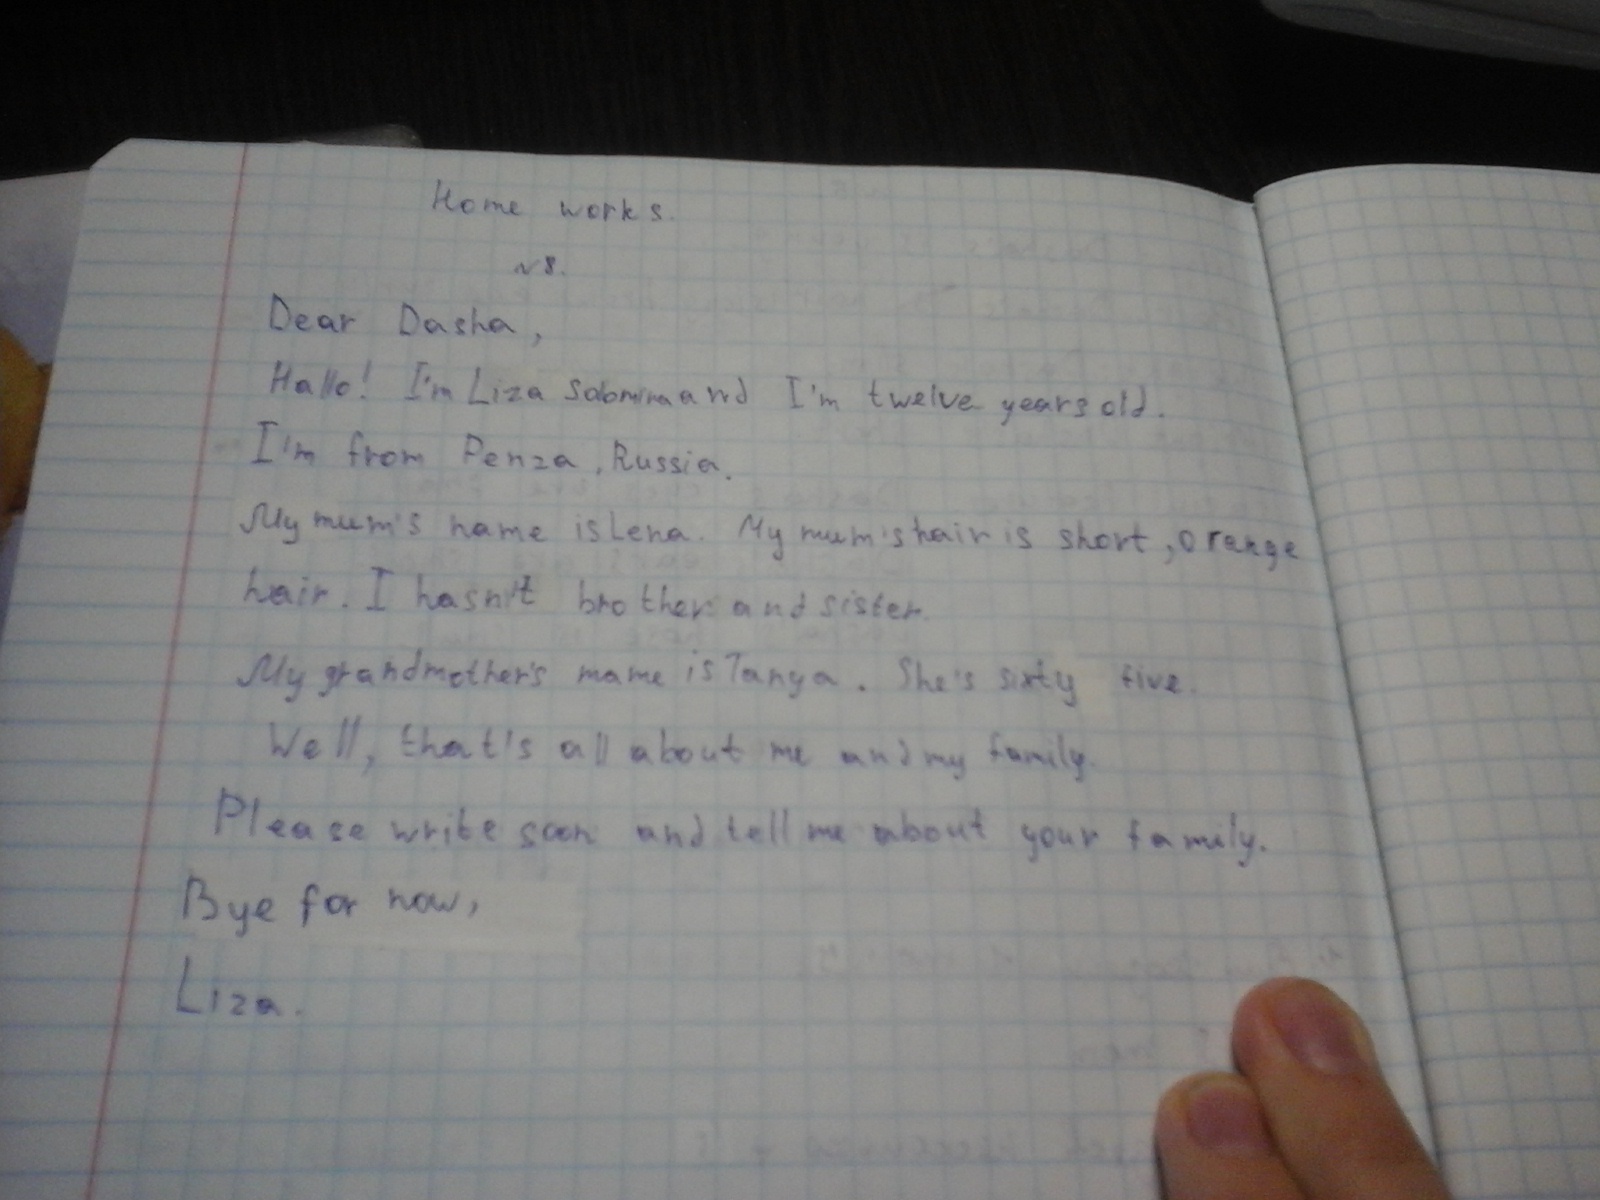 Home works.
№8.
Dear Dasha,
Hallo! I'm Liza and I'm twelve years old.
I'm from Penza, Russia.
My mum's name is Lena. My mum's hair is short, orange
hair. I hasn't brother and sister.
My grandmother's mame is Tanya. She's sixty five.
Well, that's all about me and my family.
Please write soon and tell me about your family.
Bye for now,
Liza.